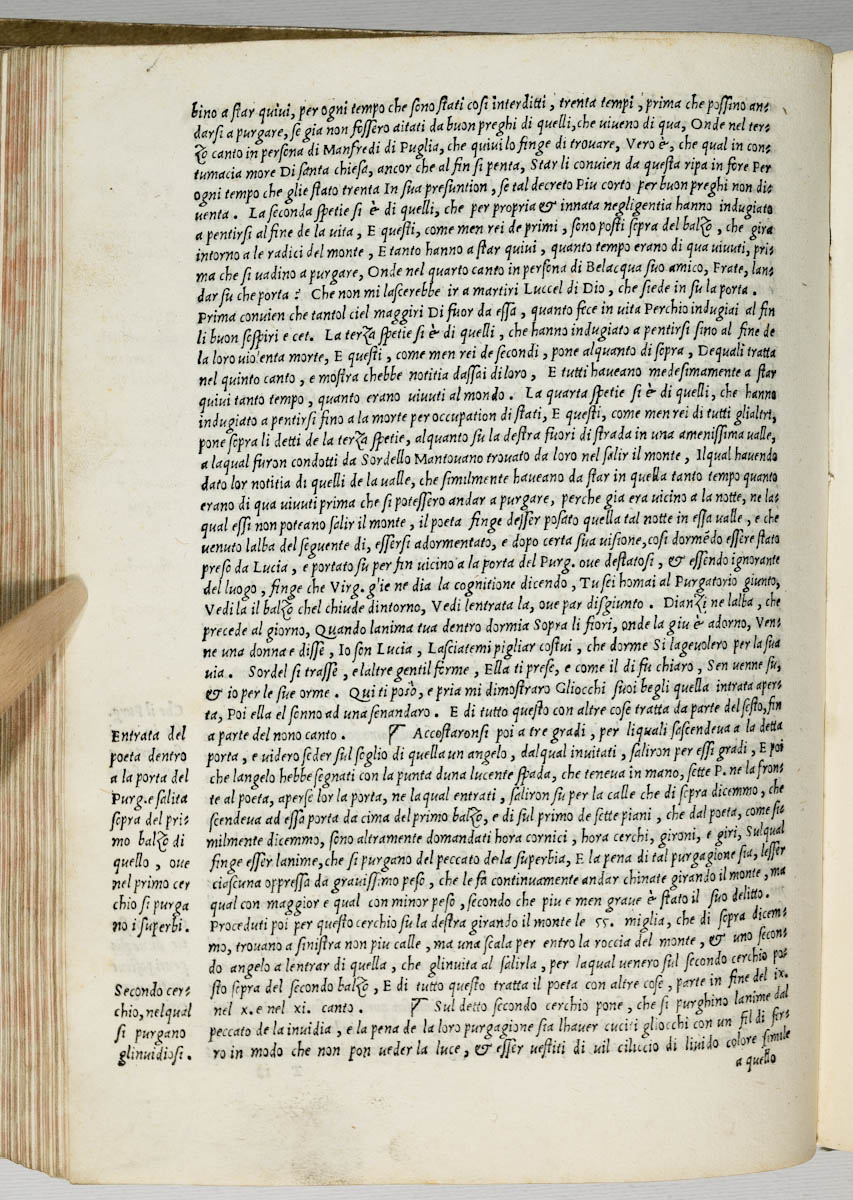 bino a star quivi, per ogni tempo che sono stati cosi interditti, trenta tempi, prima che possino an-
darsi a purgare, se gia non fossero aitati da buon preghi di quelli, che viveno di qua, Onde nel ter-
zo canto in persona di Manfredi di Puglia, che quivi lo finge di trovare, Vero è, che qual in con-
tumacia more Di santa chiesa, ancor che al fin si penta, Star li convien da questa ripa in fore Per
ogni tempo che glie stato trenta In sua presuntion, se tal decreto Piu corto per buon preghi non di-
venta. La seconda spetie si è di quelli, che per propria & innata negligentia hanno indugiato
a pentirsi al fine de la vita, E questi, come men rei de primi, sono posti sopra del balzo, che gira
intorno a le radici del monte, E tanto hanno a star quivi, quanto tempo erano di qua vivuti, pri-
ma che si vadino a purgare, Onde nel quarto canto in persona di Belacqua suo amico, Frate, lan-
dar su che porta? Che non mi lascerebbe ir a martiri Luccel di Dio, che siede in su la porta.
Prima convien che tantol ciel maggiri Di fuor da essa, quanto fece in vita Perchio indugiai al fin
li buon sospiri e cet. La terza spetie si è di quelli, che hanno indugiato a pentirsi sino al fine de
la loro violenta morte, E questi, come men rei de secondi, pone alquanto di sopra, De quali tratta
nel quinto canto, e mostra chebbe notitia dassai di loro, E tutti haveano medesimamente a star
quivi tanto tempo, quanto erano vivuti al mondo. La quarta spetie si è di quelli, che hanno
indugiato a pentirsi fino a la morte per occupation di stati, E questi, come men rei di tutti glialtri,
pone sopra li detti de la terza spetie, alquanto su la destra fuori di strada in una amenissima valle,
a laqual furon condotti da Sordello Mantovano trovato da loro nel salir il monte, Il qual havendo
dato lor notitia di quelli de la valle, che similmente haveano da star in quella tanto tempo quanto
erano di qua vivuti prima che si potessero andar a purgare, perche gia era vicino a la notte, ne la-
qual essi non poteano salir il monte, il poeta finge desser posato quella tal notte in essa valle, e che
venuto lalba del seguente di, essersi adormentato, e dopo certa sua visione, cosi dormēdo essere stato
preso da Lucia, e portato su per fin vicino a la porta del Purg. ove destatosi, & essendo ignorante
del luogo, finge che Virg. glie ne dia la cognitione dicendo, Tu sei homai al Purgatorio giunto,
Vedi la il balzo chel chiude dintorno, Vedi lentrata la, ove par disgiunto. Dianzi ne lalba, che
precede al giorno, Quando lanima tua dentro dormia Sopra li fiori, onde la giu è adorno, Ven-
ne una donna e disse, Io son Lucia, Lasciatemi pigliar costui, che dorme Si lagevolero per la sua
via. Sordel si trasse, e laltre gentil forme, Ella ti prese, e come il di fu chiaro, Sen venne su,
& io per le sue orme. Qui ti posò, e pria mi dimostraro Gliocchi suoi begli quella intrata aper-
ta, Poi ella el sonno ad una senandaro. E di tutto questo con altre cose tratta da parte del sesto, fin
a parte del nono canto. ¶ Accostaronsi poi a tre gradi, per liquali sascendeva a la detta
porta, e videro seder sul soglio di quella un angelo, dal qual invitati, saliron per essi gradi, E poi
che langelo hebbe segnati con la punta duna lucente spada, che teneva in mano, sette P. ne la fron-
te al poeta, aperse lor la porta, ne la qual entrati, saliron su per la calle che di sopra dicemmo, che
scendeva ad essa porta da cima del primo balzo, e di sul primo de sette piani, che dal poeta, come si-
milmente dicemmo, sono altramente domandati hora cornici, hora cerchi, gironi, e giri, Sul qual
finge esser lanime, che si purgano del peccato de la superbia, E la pena di tal purgagione sia, lesser
ciascuna oppressa da gravissimo peso, che le fa continuamente andar chinate girando il monte, ma
qual con maggior e qual con minor peso, secondo che piu e men grave è stato il suo delitto.
Proceduti poi per questo cerchio su la destra girando il monte le 55. miglia, che di sopra dicem-
mo, trovano a sinistra non piu calle, ma una scala per entro la roccia del monte, & uno secon-
do angelo a lentrar di quella, che glinvita al salirla, per laqual venero sul secondo cerchio po-
sto sopra del secondo balzo, E di tutto questo tratta il poeta con altre cose, parte in fine del ix.
nel x. e nel xi. canto. ¶ Sul detto secondo cerchio pone, che si purghino lanime dal
peccato de la invidia, e la pena de la loro purgagione sia lhaver cuciti gliocchi con un fil di fer-
ro in modo che non pon veder la luce, & esser vestiti di vil ciliccio di livido colore simile
a quello
Entrata del
poeta dentro
a la porta del
Purg. e salita
sopra del pri-
mo balzo di
quello, ove
nel primo cer
chio si purga
no i superbi.
Secondo cer-
chio, nelqual
si purgano
glinvidiosi.